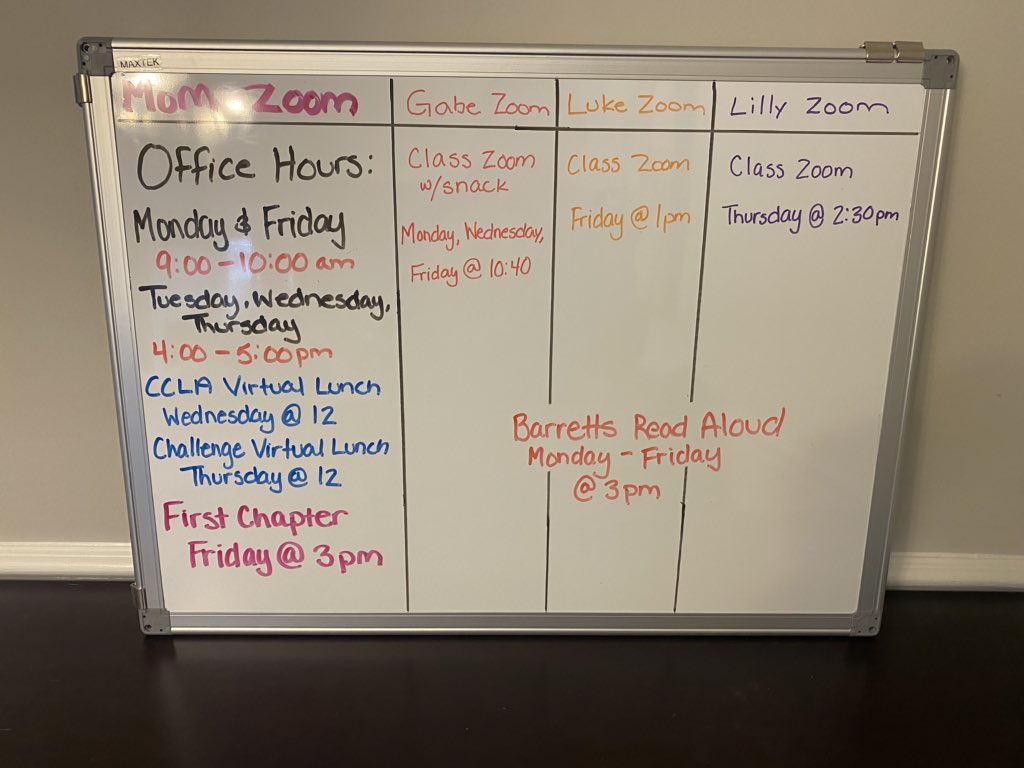 MAXTEK
Mom Zoom
Office Hours:
Monday & Friday
9:00 - 10:00 am
Tuesday, Wednesday,
Thursday
4:00 - 5:00pm
CCLA Virtual Lunch
Wednesday @ 12
Challenge Virtual Lunch
Thursday @ 12
First Chapter
Friday @ 3pm
Gabe Zoom
Class Zoom
w/snack
Monday, Wednesday,
Friday @ 10:40
Luke Zoom
Class Zoom
Friday @ 1pm
Lilly Zoom
Class Zoom
Thursday @ 2:30pm
Barretts Read Aloud
Monday - Friday
@ 3pm